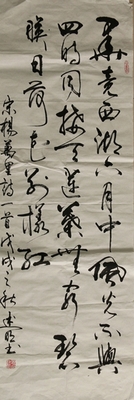 畢竟西湖六月中風光不與
四時同接天蓮葉無窮碧
映日荷花別樣紅
宋楊萬里詩一首戊戌之秋建明書